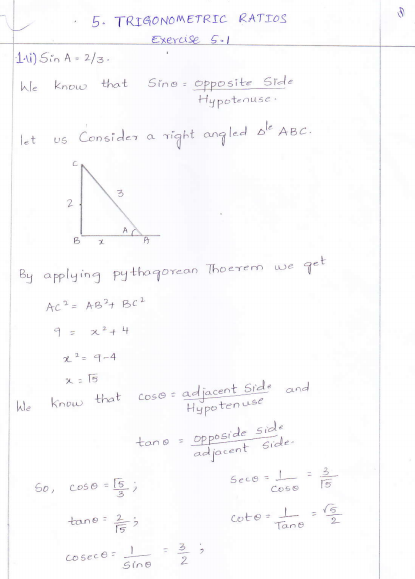 5. TRIGONOMETRIC RATIOS
Exercise 5.1
1.i) Sin A = 2/3.
We know that Sinθ = opposite Side / Hypotenuse.
let us Consider a right angled Δle ABC.
C
2 3
A
B x A
By applying pythagorean Thoerem we get
AC² = AB² + BC²
9 = x² + 4
x² = 9-4
x = √5
We know that cosθ = adjacent Side / Hypotenuse and
tanθ = opposide side / adjacent side.
So, cosθ = √5/3 ; Secθ = 1/Cosθ = 3/√5
tanθ = 2/√5 ; Cotθ = 1/Tanθ = √5/2
Cosecθ = 1/Sinθ = 3/2 ;